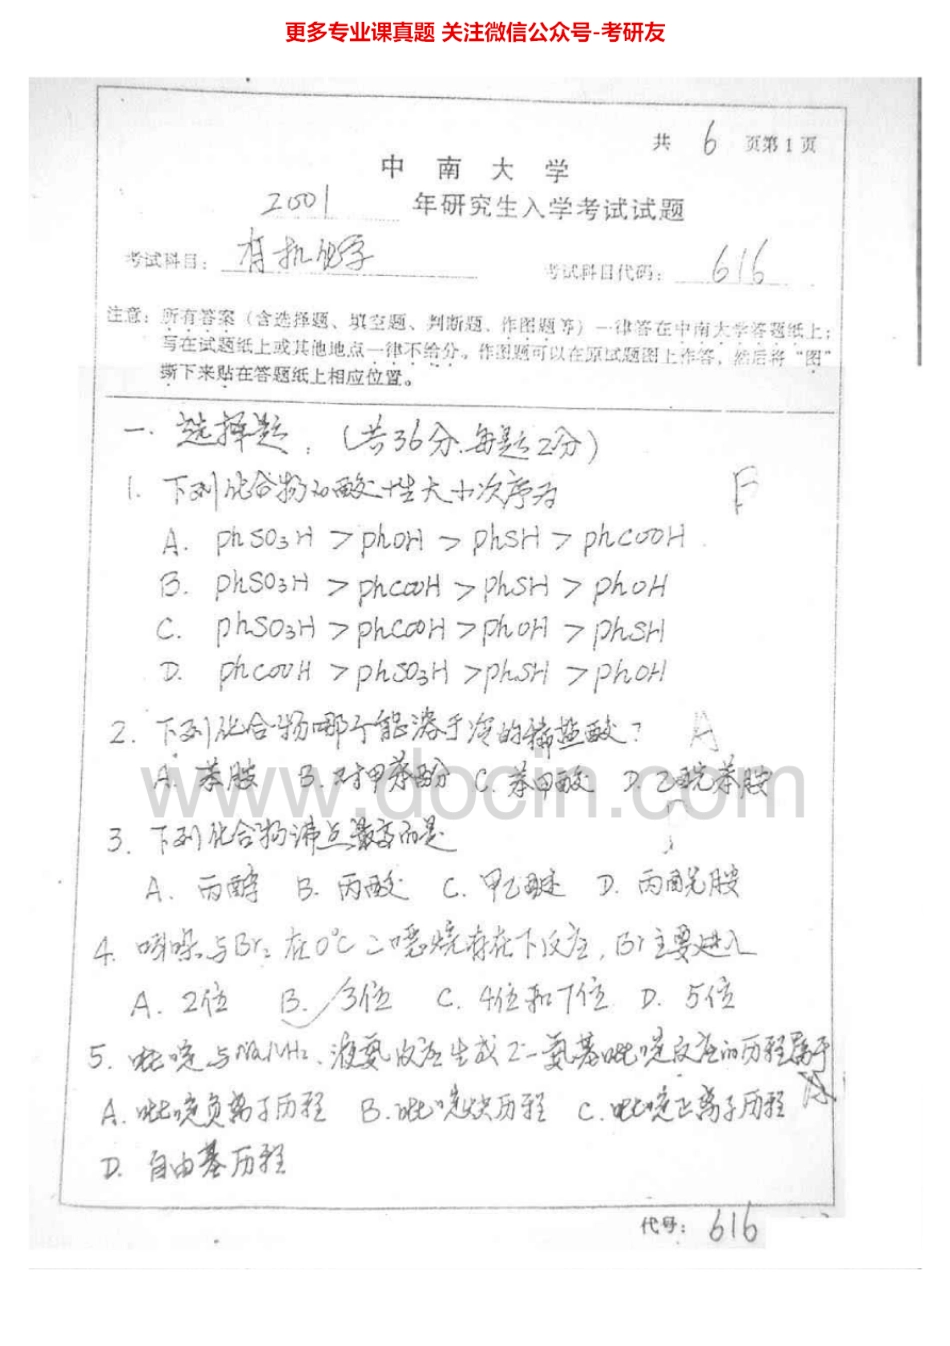 更多专业课真题 关注微信公众号-考研友
共 6 页第 1 页
中 南 大 学
2001 年研究生入学考试试题
考试科目: 有机化学 考试科目代码: 616
注意: 所有答案（含选择题、填空题、判断题、作图题等）一律答在中南大学答题纸上;
写在试题纸上或其他地点一律不给分。作图题可以在原试题图上作答, 然后将“图”
撕下来贴在答题纸上相应位置。
一. 选择题. (共36分.每题2分)
1. 下列化合物的酸性大小次序为
A. phSO3H > phOH > phSH > phCOOH.
B. phSO3H > phCOOH > phSH > phOH
C. phSO3H > phCOOH > phOH > phSH
D. phCOOH > phSO3H > phSH > phOH
2. 下列化合物哪个能溶于冷的稀盐酸? A
A. 苯胺 B. 对甲苯酚 C. 苯甲酸 D. 乙酰苯胺
www.docin.com
3. 下列化合物沸点最高的是
A. 丙醇 B. 丙酸 C. 甲乙醚 D. 丙酰胺
4. 吲哚与Br2在0℃二噁烷存在下反应, Br主要进入
A. 2位 B. 3位 C. 4位和7位 D. 5位
5. 吡啶与NaNH2、液氨反应生成2-氨基吡啶反应的历程属于
A. 吡啶负离子历程 B. 吡啶炔历程 C. 吡啶正离子历程 A
D. 自由基历程
代号: 616